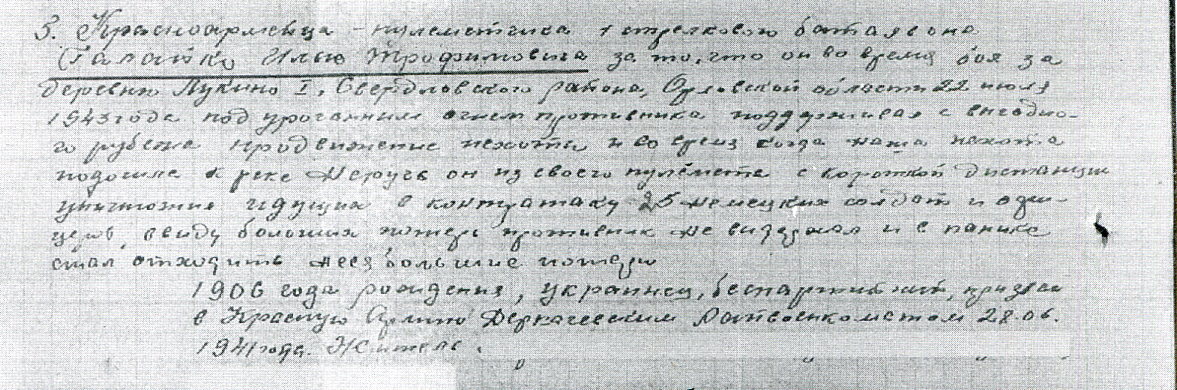 3. Красноармейца - пулеметчика 1 стрелкового батальона
Галайко Илью Трофимовича за то, что он во время боя за
деревню Лукино I, Свердловского района, Орловской области 22 июля
1943 года под ураганным огнем противника поддерживал с выгодно-
го рубежа продвижение пехоты и во время когда наша пехота
подошла к реке Неручь он из своего пулемета с короткой дистанции
уничтожил идущих в контратаку 25 немецких солдат и офи-
церов, ввиду больших потерь противник не выдержал и в панике
стал отходить неся большие потери
1906 года рождения, украинец, беспартийный, призван
в Красную Армию Деркачевским Райвоенкоматом 28.06.
1941 года. Житель